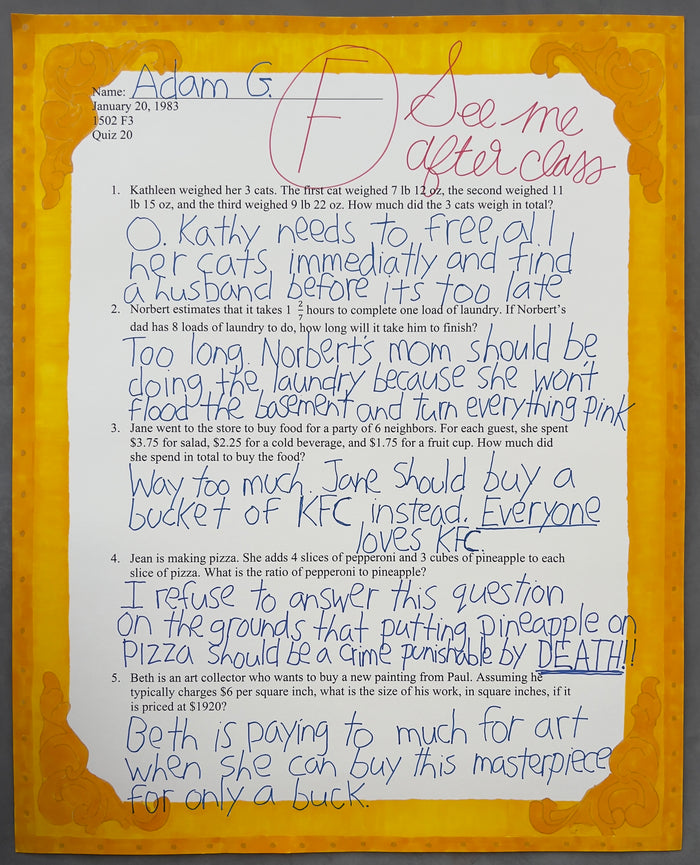 Name: Adam G.
January 20, 1983
1502 F3
Quiz 20
F
See me
after class
1. Kathleen weighed her 3 cats. The first cat weighed 7 lb 12 oz, the second weighed 11
lb 15 oz, and the third weighed 9 lb 22 oz. How much did the 3 cats weigh in total?
O. Kathy needs to free all
her cats immediatly and find
a husband before its too late
2. Norbert estimates that it takes 1 2/7 hours to complete one load of laundry. If Norbert's
dad has 8 loads of laundry to do, how long will it take him to finish?
Too long. Norbert's mom should be
doing the laundry because she won't
flood the basement and turn everything pink
3. Jane went to the store to buy food for a party of 6 neighbors. For each guest, she spent
$3.75 for salad, $2.25 for a cold beverage, and $1.75 for a fruit cup. How much did
she spend in total to buy the food?
Way too much. Jane should buy a
bucket of KFC instead. Everyone
loves KFC.
4. Jean is making pizza. She adds 4 slices of pepperoni and 3 cubes of pineapple to each
slice of pizza. What is the ratio of pepperoni to pineapple?
I refuse to answer this question
on the grounds that putting pineapple on
pizza should be a crime punishable by DEATH!!
5. Beth is an art collector who wants to buy a new painting from Paul. Assuming he
typically charges $6 per square inch, what is the size of his work, in square inches, if it
is priced at $1920?
Beth is paying to much for art
when she can buy this masterpiece
for only a buck.